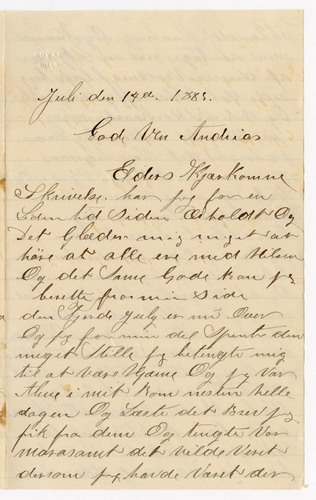 Juli den 14de 1883.
Gode Ven Andrias
Eders Kjærkomne
Skrivelse har jeg for en
Soum tid siden Erholdt Og
Det Glæder mig meget at
höre at alle ere med Helsen
Og det Same Gode kan jeg
berette fra min Side
den Fjorde July er nu Over
Og jeg for min del Spente den
meget Stille jeg betengte mig
til at være Hjeme Og jeg Var
Alene i mit Rom nesten helle
dagen Og Læste det Brev jeg
fik fra dem Og tengte Vor
morasamt det vilde Veret
dersom jeg havde Været der